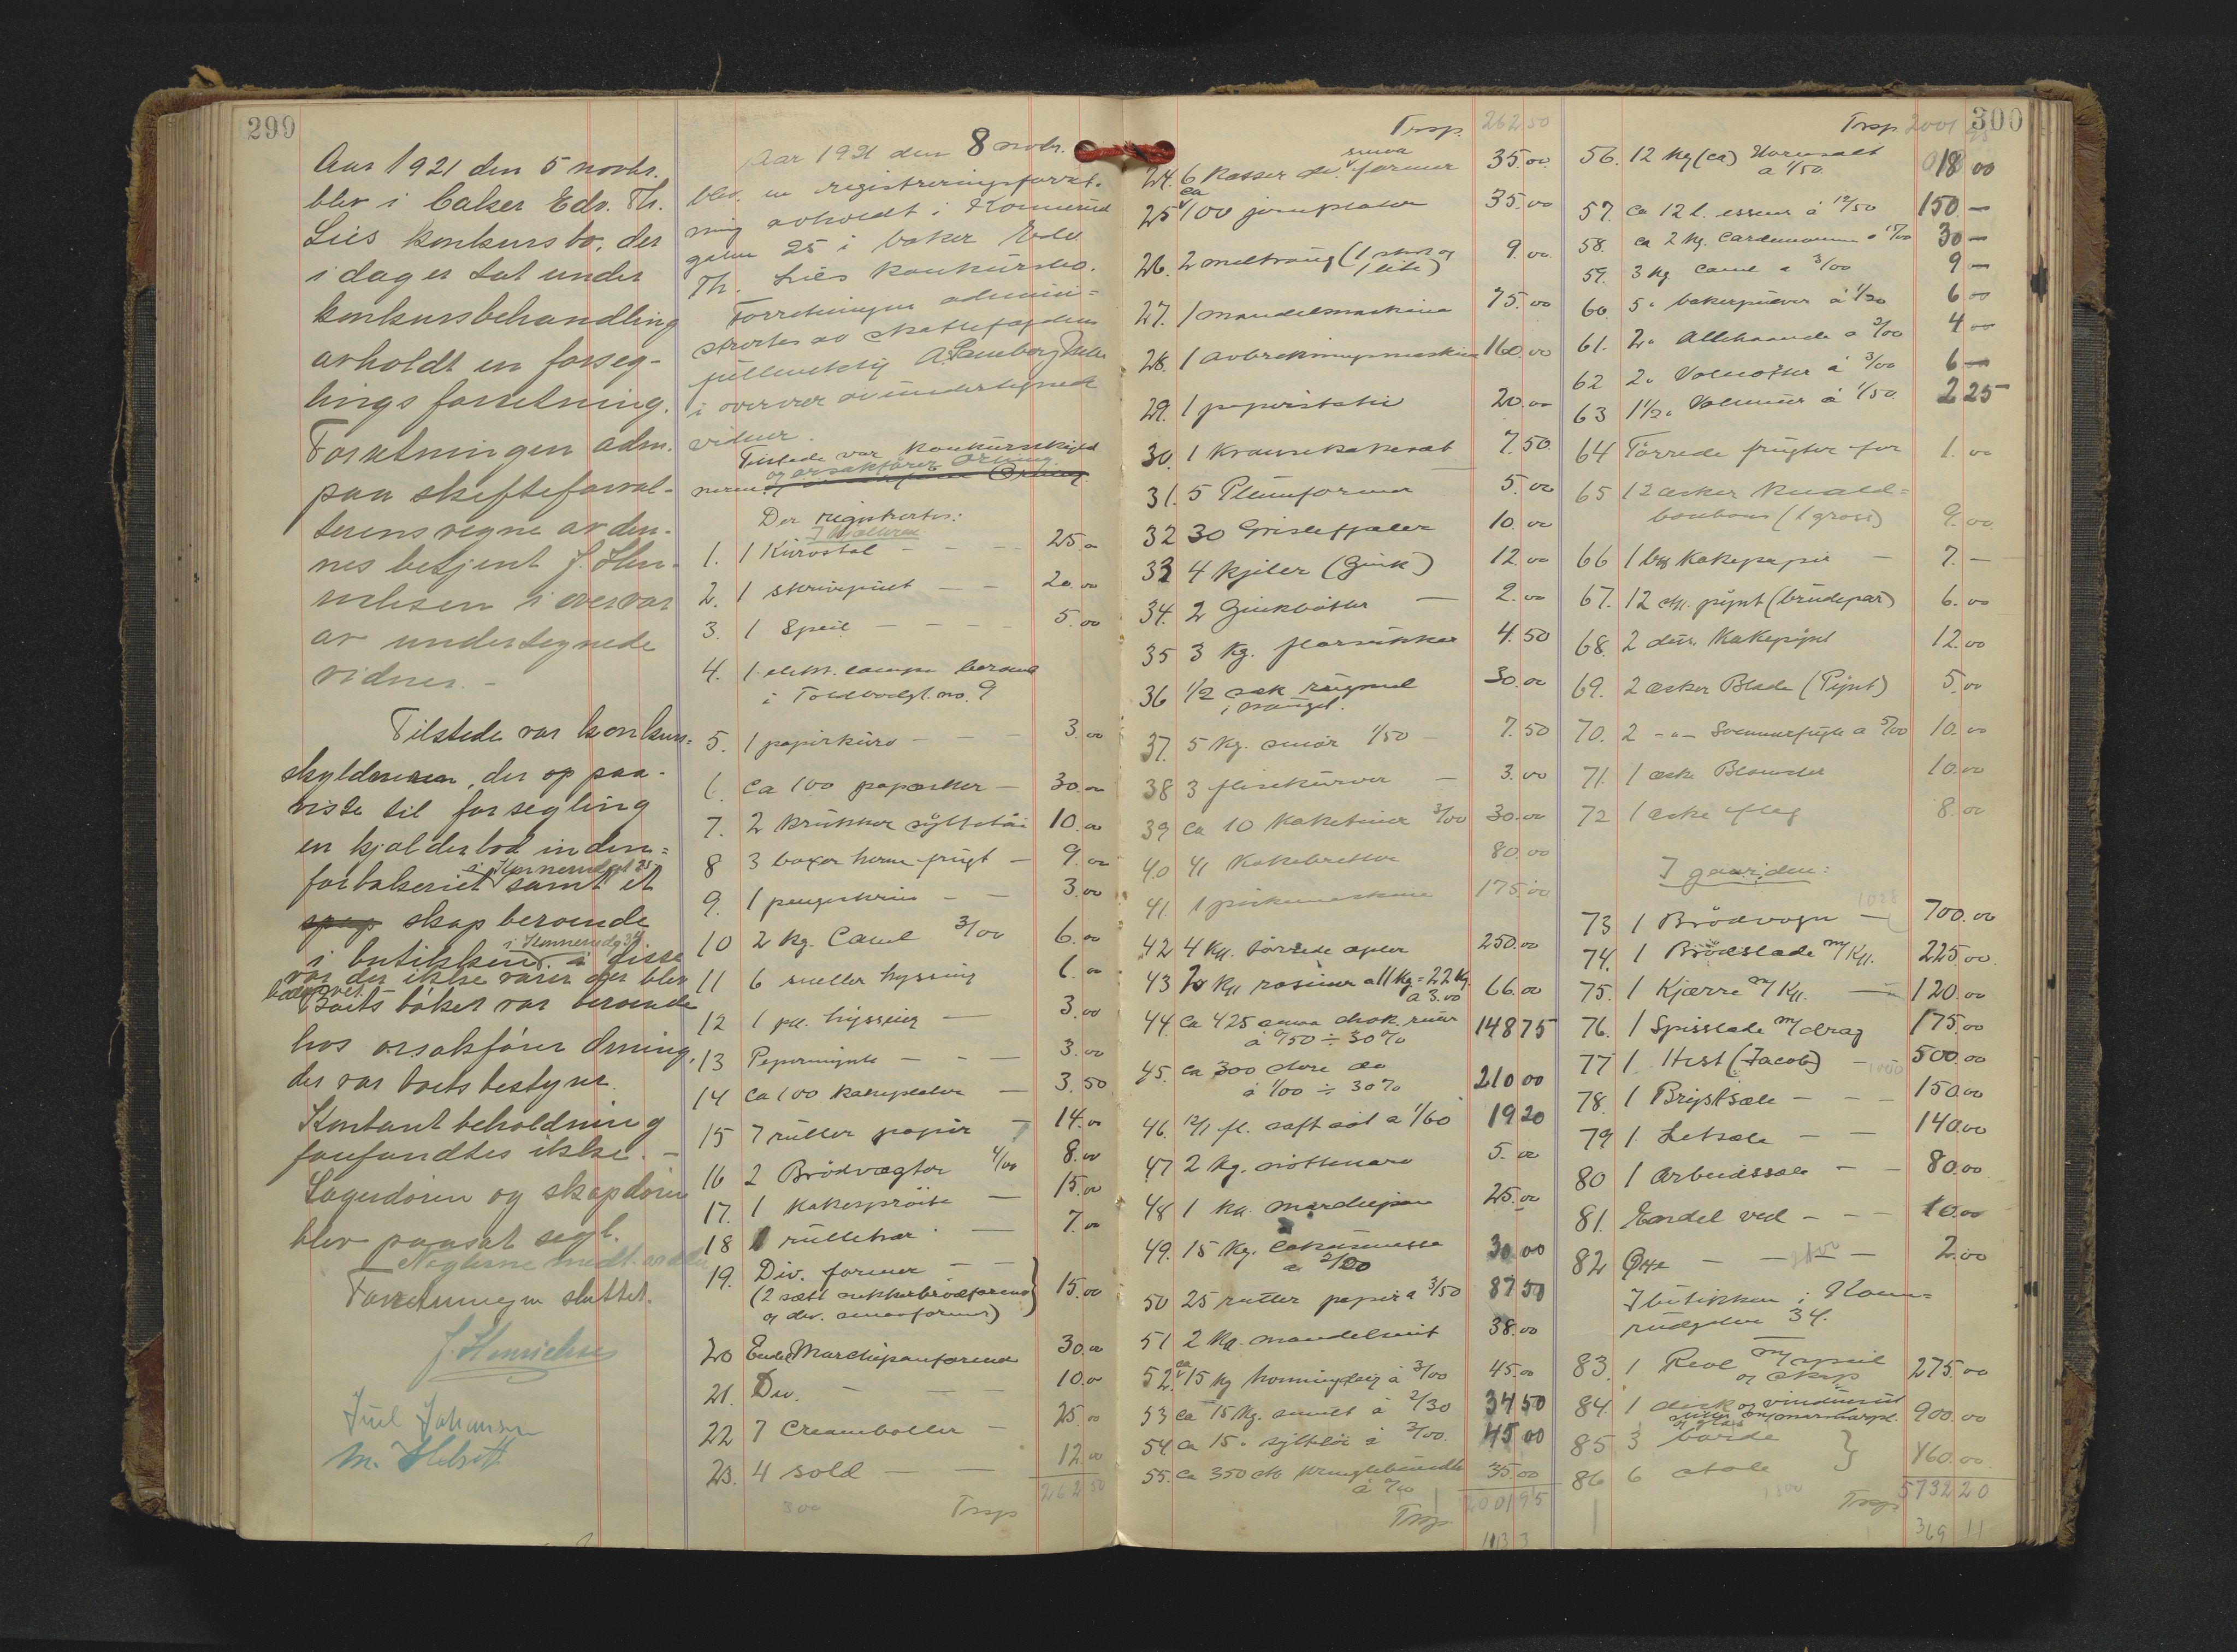 299
Aar 1921 den 5 novbr.
blev i baker Edv. Th.
Lies konkursbo, der
i dag er tat under
konkursbehandling
avholdt en forseg-
lings forretning.
Forretningen adm.
paa skifteforval-
terens vegne av den-
nes betjent J. Hen-
richsen i overvær
av undertegnede
vidner. -
Tilstede var konkurs-
skyldneren, der op paa-
viste til forsegling
en kjælderbod inden-
for bakeriet i Konnerudgt 25 samt et
skap beroende
i butikken i Konnerudg 34. i disse
var der ikke varer der blev
Boets bøker var beroende
hos orsakfører Ørning,
der var boets bestyrer.
Kontant beholdning
forefandtes ikke. -
Lagerdøren og skapdøren
blev paasat segl.
Nøglerne medt.
Forretningen sluttet.
J. Henrichsen
Juel Johansen
M.
Aar 1921 den 8 novbr.
blev en registreringsforret-
ning avholdt i Konnerud
gaten 25 i baker Edv.
Th. Lies konkursbo.
Forretningen admini-
strertes av skattefogdens
fuldmektig A.
i overvær av undertegnede
vidner.
Tilstede var konkursskyld
neren og orsakfører Ørning
Der registrertes:
I kjælleren
1. 1 Kurvstol - - - 25.00
2. 1 skrivepult - - 20.00
3. 1 Speil - - - - 5.00
4. 1 elektr. lampe beroende
i Toldbodgt. no. 9
5. 1 papirkurv - - - 3.00
6. Ca 100 papæsker - 30.00
7. 2 krukker syltetøi 10.00
8 3 boxer herm. frugt - 9.00
9. 1 pengeskrin - - 3.00
10 2 kg. Canel 3/00 6.00
11 6 sneller hyssing 6.00
12 1 pk. hyssing - 3.00
13 Pepermynte - - - 3.00
14 Ca 100 kakeplater - 3.50
15 7 ruller papir 14.00
16 2 Brødvægter 4/00 8.00
17. 1 Kakesprøite - 15.00
18 1 rullebar - - 7.00
19. Div. former - -
(2 sæt sukkerbrødformer
og div. smaaformer) 15.00
20 Endel Marcipanformer 30.00
21. Div. - - - 10.00
22 7 Creamboller - 25.00
23. 4 sold - - 12.00
262 50
300 Trsp
Trsp. 262 50
24. 6 Kasser div. smaa former 35.00
25 ca 100 jernplater 35.00
26. 2 meltraug (1 stor og
1 lite) 9.00
27. 1 mandelmaskine 75.00
28. 1 avbrekningsmaskine 160.00
29. 1 papirstativ 20.00
30. 1 Kransekakesæt 7.50
31. 5 Plumformer 5.00
32 30 Grislefjæler 10.00
33 4 kjeler (Zink) 12.00
34. 2 Zinkbøtter - 2.00
35 3 kg. florsukker 4.50
36 1/2 sæk rugmel 30.00
37. 5 kg. smør 1/50 - 7.50
38 3 flisekurver - 3.00
39 ca 10 Kakebiner 3/00 30.00
40 41 Kakebretter 80.00
41. 1 piskemaskine 175.00
42 4 Ks. tørrede epler 250.00
43 2 Ks rosiner a 11 kg = 22 kg.
a 3.00 66.00
44. Ca 425 smaa chok.
à 0/50 ÷ 30% 148 75
45. Ca 300 store do
à 1/00 ÷ 30% 210 00
46. 12/1 fl. saft søt a 1/60 19 20
47 2 kg. nøttemasse 5.00
48 1 ka. marcipan 25.00
49. 15 kg. Cokusmasse
a 2/00 30.00
50 25 ruller papir a 3/50 87 50
51 2 kg. mandelmit 38.00
52. ca 15 kg honningdeig à 3/00 45.00
53 ca 15 kg. smult à 2/30 34 50
54 ca 15 " syltetøi à 3/00. 45 00
55. ca 350 stk
35.00
2001 95
Trsp.
300
Trsp 2001 95
56. 12 kg (ca) Hornsalt
a 1/50. 18 00
57. ca 12 l. essens á 12/50 150 -
58. ca 2 kg. Cardemomme a 15/00 30 -
59. 3 kg Canel a 3/00 9 -
60. 5 " bakerpulver á 1/20 6.00
61. 2 " Allehaande a 2/00 4.00
62 2 " Valnøtter á 3/00 6 -
63 1 1/2 " Valmue à 1/50. 2 25
64 Tørrede frugter for 1.00
65 12 æsker Knald-
bonbons (1 gross) 9.00
66 1 Kakepapir - 7.-
67. 12 stk. pynt (brudepar) 6.00
68. 2 dus. Kakepynt 12.00
69. 2 æsker Blade (Pynt) 5.00
70. 2 -"- Sommerfugle a 5/00 10.00
71. 1 æske Blomster 10.00
72 1 æske flag 8.00
I gaarden:
73 1 Brødvogn - 700.00
74. 1 Brødslade m/Ks. 225.00
75. 1 Kjærre m/Ks. - 120.00
76. 1 Spisslæde m/drag 175.00
77 1 Hest (Jacob) - 500.00
78. 1 Brystsæle - - - 150.00
79 1. Letsæle - - 140.00
80 1 Arbeidssæle - - 80.00
81. Endel ved - - - 10.00
82 Øxe - - - - 2.00
I butikken i Konne-
rudgaten 34.
83. 1 Reol m/speil
og skap 275.00
84. 1 disk og
900.00
85 3 borde
86 6 stole 160.00.
5732 20
Trsp.
369 11